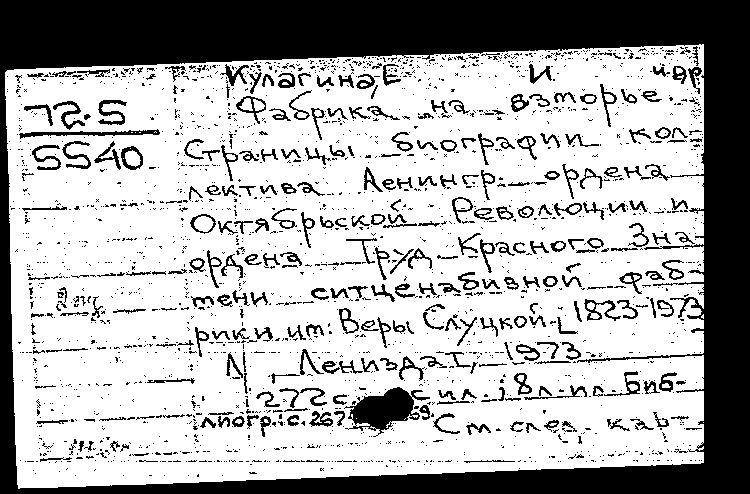 Кулагина, Е И и др.
72.5
5540
Фабрика на взморье.
Страницы биографии кол-
лектива Ленингр. ордена
Октябрьской Революции и
ордена Труд. Красного Зна-
мени ситценабивной фаб-
рики им. Веры Слуцкой, 1823-1973
Л., Лениздат, 1973
272 с. с ил.; 8 л. ил. Биб-
лиогр.: с. 267
См. след. кар-